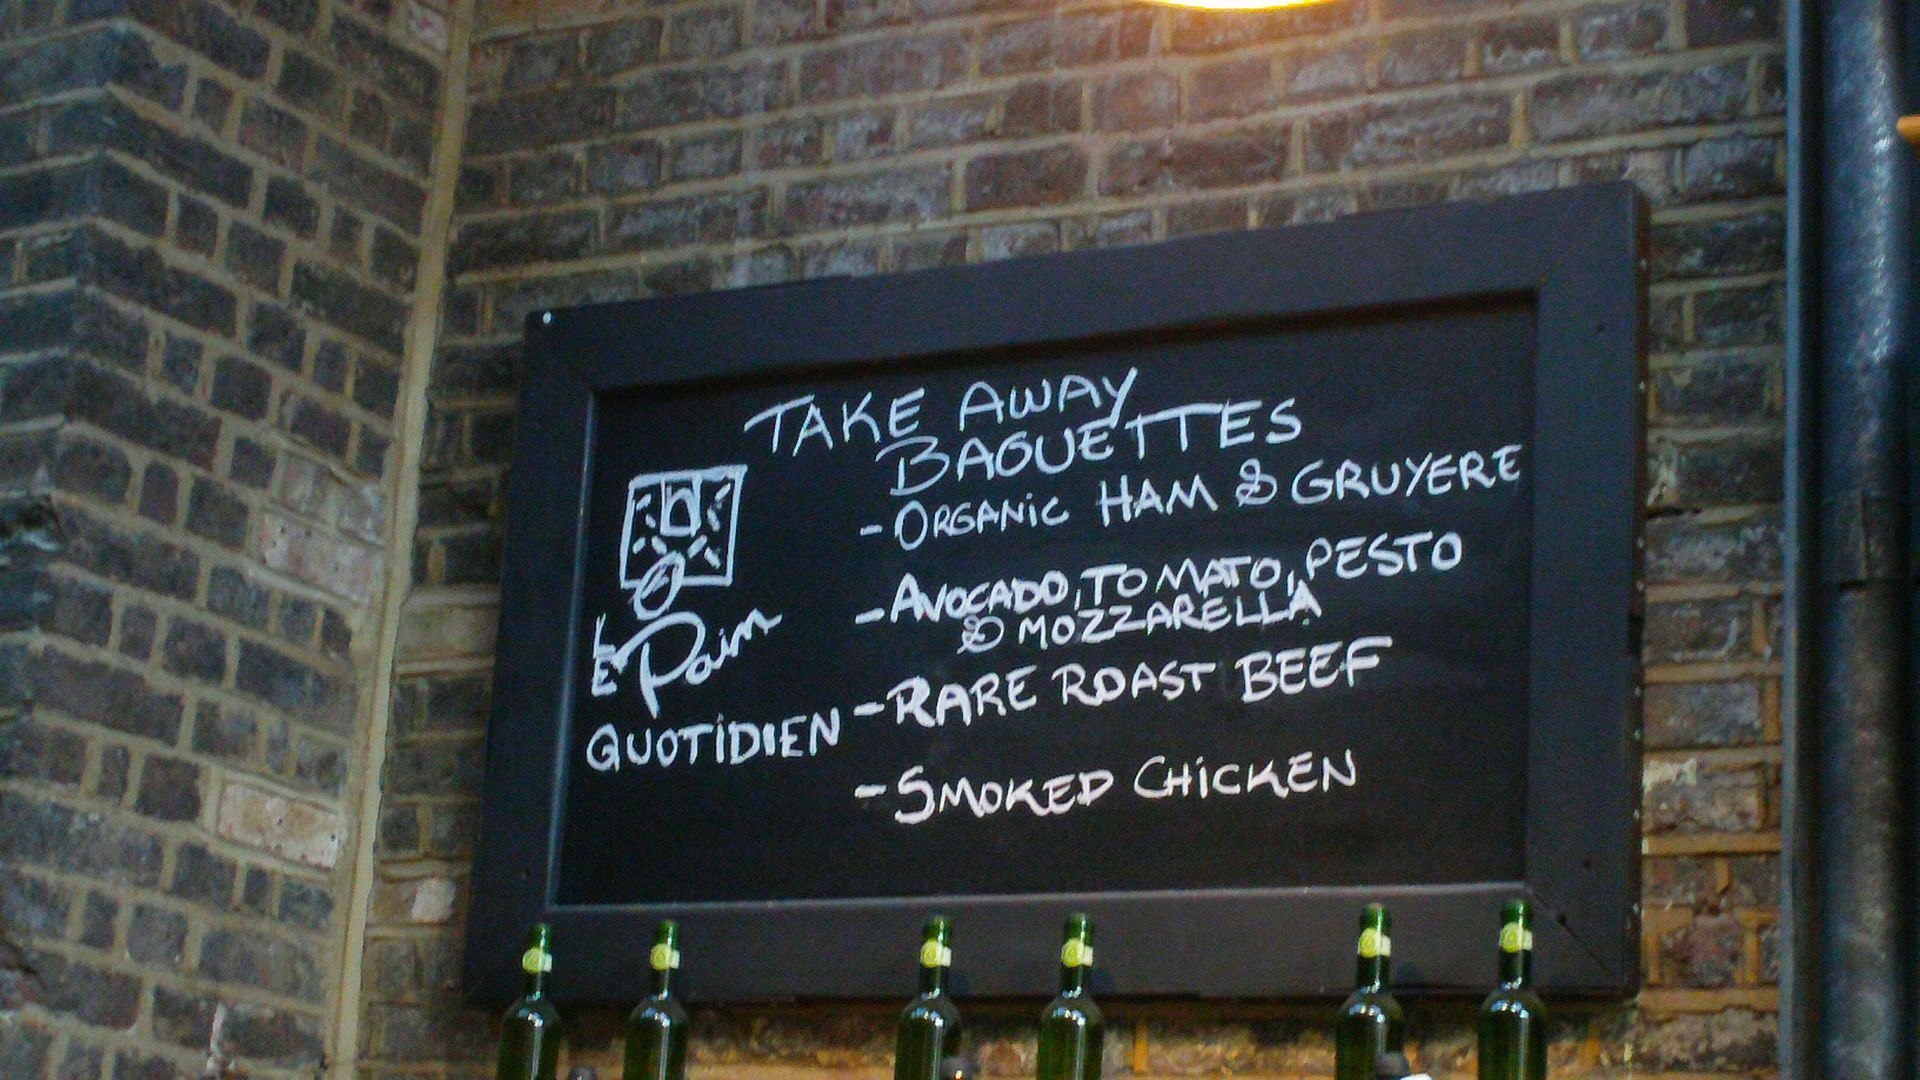 TAKE AWAY
BAGUETTES
- ORGANIC HAM & GRUYERE
- AVOCADO, TOMATO, PESTO
& MOZZARELLA
- RARE ROAST BEEF
- SMOKED CHICKEN
LE Pain
QUOTIDIEN